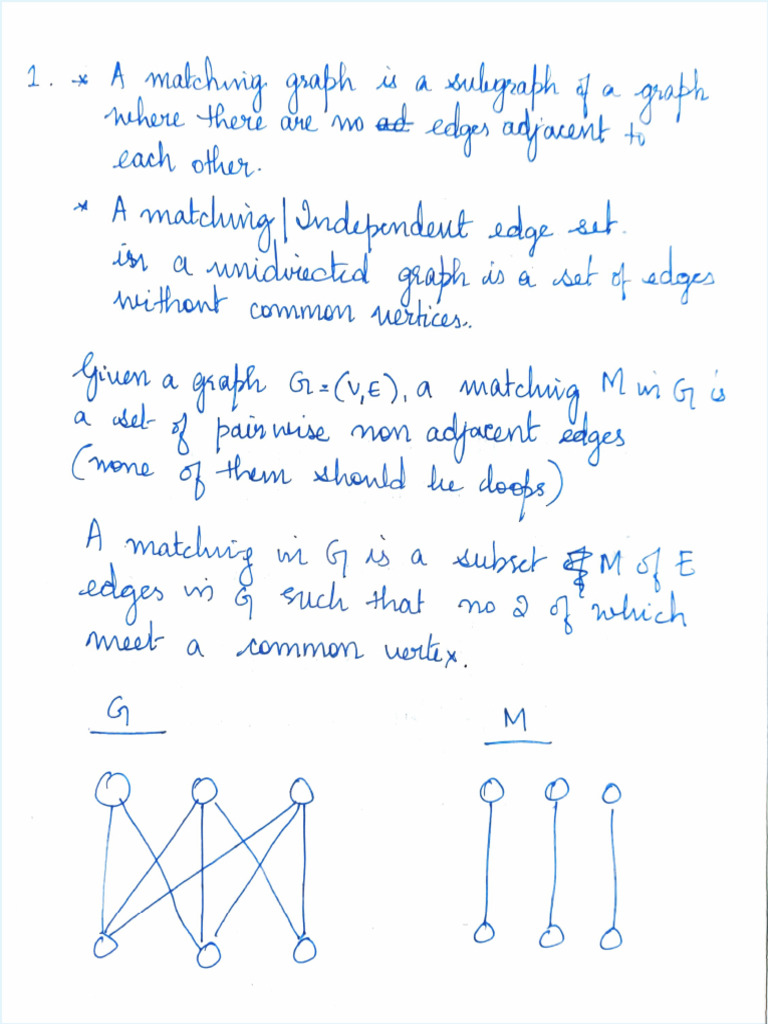 1. * A matching graph is a subgraph of a graph
where there are no ad edges adjacent to
each other.
* A matching | Independent edge set.
in a unidirected graph is a set of edges
without common vertices.
Given a graph G = (V,E), a matching M in G is
a set of pairwise non adjacent edges
(none of them should be loops)
A matching in G is a subset M of E
edges in G such that no 2 of which
meet a common vertex.
G M